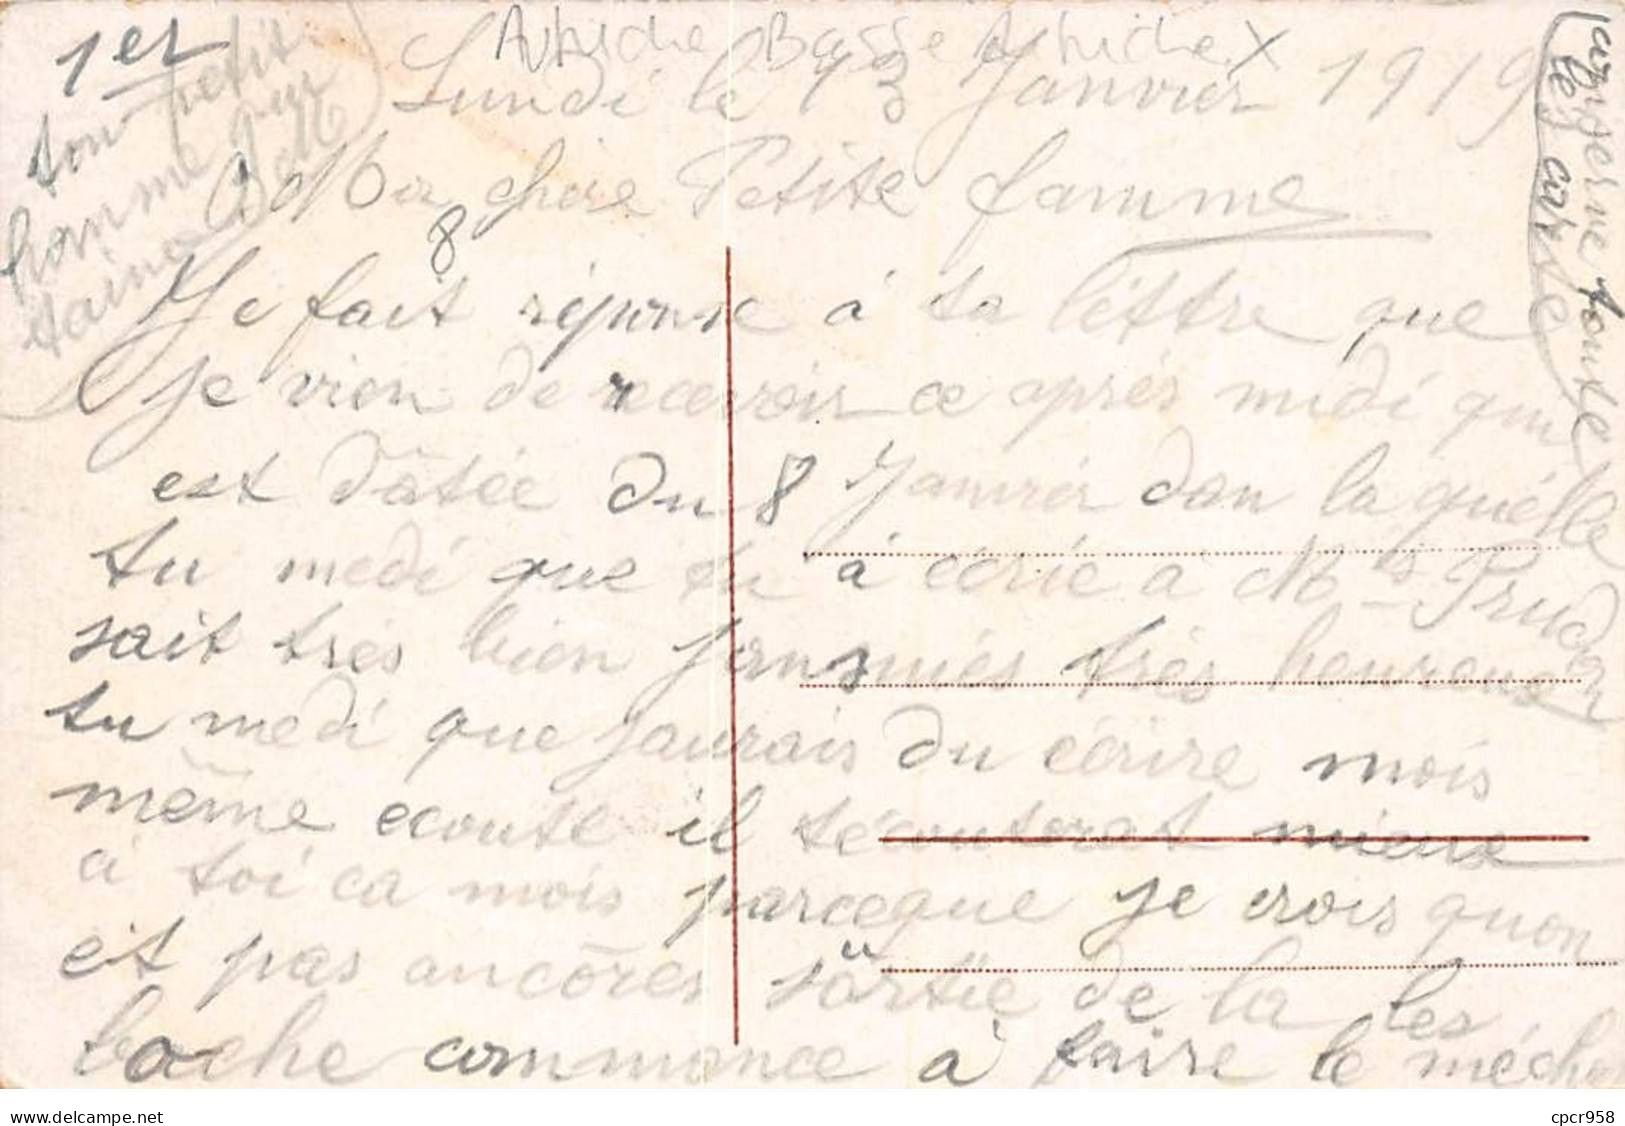 1er
ton petit
homme qui
t'aime
Lundi le 13 Janvier 1919
Ma chère Petite famme
Je fait réponse à ta léttre que
je vien de recevoir ce après midi qui
est dâtée du 8 Janvier dan la quélle
tu medi que tu à écrie a Mr Prudon
sait très bien très heureux
tu medi que jaurais du écrire mois
même ecoute il técouterat mieux
à toi ca mois parceque je crois quon
èt pas ancôres sôrtie de la les
boche commance à faire le méchan
conserve toute
les carte
cpcr958